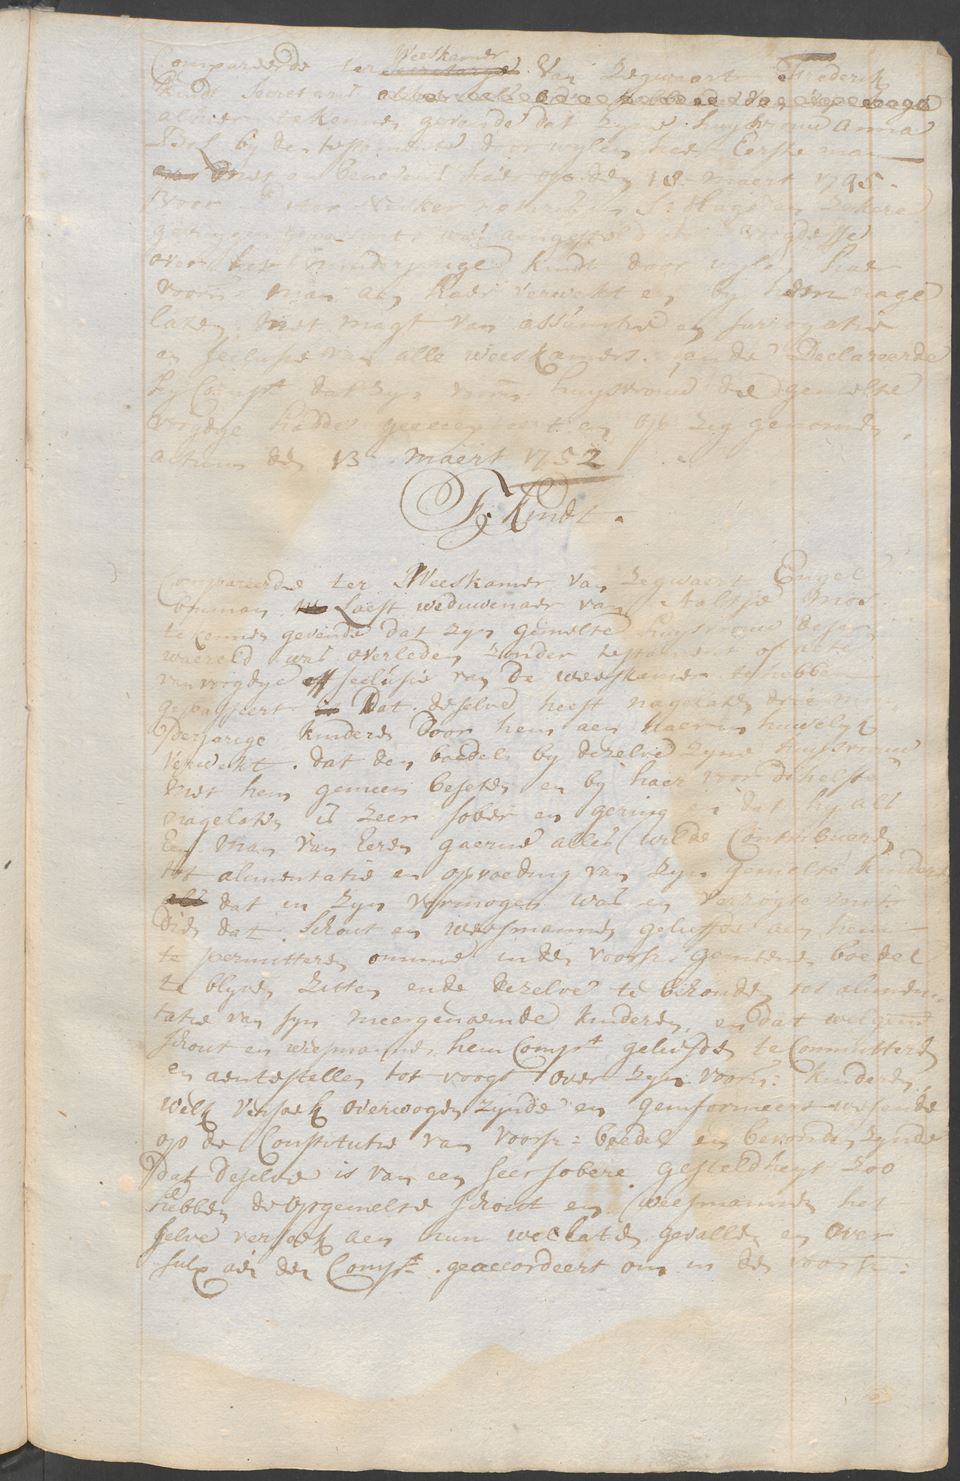 Compareerde ter Weeskamer Van Zegwaert Frederik
Kindt Secretaris
alhier te kennen gevende dat Zyne huysvrouw Anna
Bol by den testamente door wylen haer Eerste man
met en benevens haer op den 18 maert 1745.
Voor Notaris in S: Hage en Zekere
getuygen gepasseert was aengestelt tot voogdesse
over het minderjarige Kindt door wylen haer
voorn: man aen haer verwekt en by hem nage
laten, met magt van assumtie en surrogatie
en seclusie van alle weeskamers. ende Declareerde
hy Compt. dat zyn voorn: huysvrouw die gemelte
voogdye hadde geaccepteert en op zig genomen,
actum den 13 maert 1752
F: Kindt.
Compareerde ter Weeskamer van Zegwaert Engel
bosman Laest weduwenaer van Aaltje
te kennen gevende dat zyn gemelte huysvrouw deser
waereld was overleden zonder testament of acte
van voogdye off seclusie van de weeskamer te hebben
gepasseert Dat deselve heeft nagelaten drie min
derjarige kinderen Door hem aen haer in huwelyk
verwekt. dat den boedel by dezelve zyne huysvrouw
met hem gemeen beseten en by haer voor de helfte
nagelaten is zeer sober en gering en dat hy als
Een man van Eeren gaerne alles wilde Contribueren
tot alimentatie en opvoeding van zyn gemelte kinderen
dat in zyn vermogen was en verzogte mits
dien dat Schout en weesmannen geliefden aen hem
te permitteren omme in den voorsz. gemeenen boedel
te blyven zitten ende dezelve te behouden tot alimen
tatie van syn meergenoemde kinderen, en dat welgem
schout en weesmannen hem Compt. geliefden te Committeren
en aentestellen tot voogt over zyn voorn: kinderen,
welk versoek overwogen zynde en geinformeert wesende
op de Constitutie van voorsz: boedel en bevonden zynde
dat deselve is van een seer sobere gesteldheyt zoo
hebben de opgemelte schout en weesmannen het
selve versoek aen hun wellaten gevallen en over
sulx aen den Compt. geaccordeert om in den voorsz: